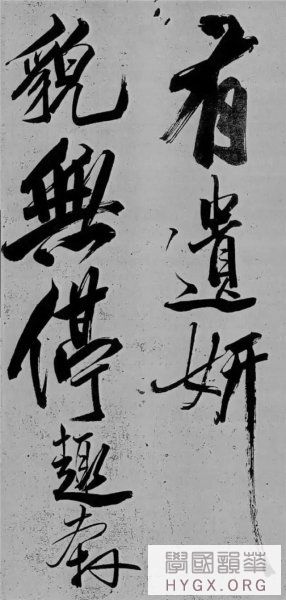 有遺妍
貌無停趣奔
華韻國學
HYGX.ORG